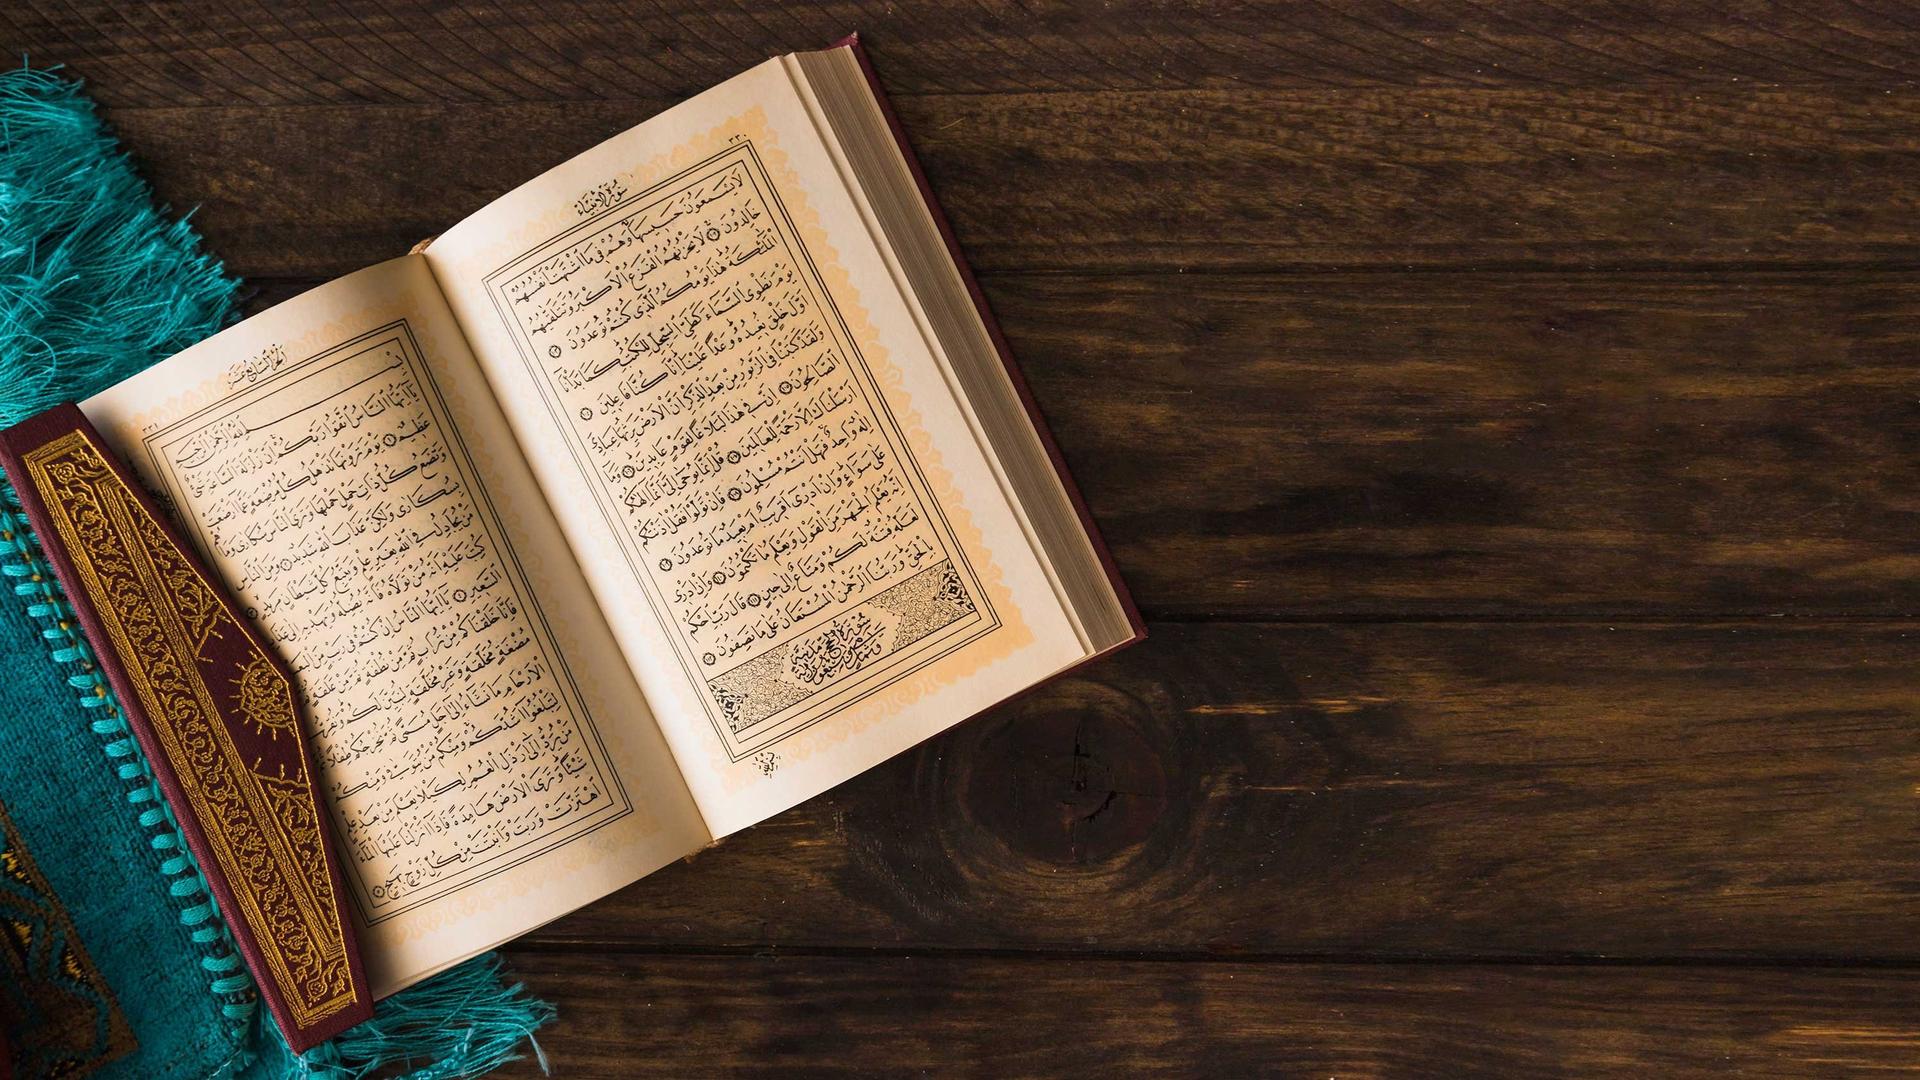 ٣٣٠
سورة الأنبياء
لا يسمعون حسيسها وهم في ما اشتهت أنفسهم
خالدون لا يحزنهم الفزع الأكبر وتتلقيهم
الملئكة هذا يومكم الذي كنتم توعدون
يوم نطوي السماء كطي السجل للكتب كما بدأنا
أول خلق نعيده وعدا علينا إنا كنا فاعلين
ولقد كتبنا في الزبور من بعد الذكر أن الأرض يرثها عبادي
الصالحون إن في هذا لبلاغا لقوم عابدين وما
أرسلناك إلا رحمة للعالمين قل إنما يوحى إلي أنما إلهكم
إله واحد فهل أنتم مسلمون فإن تولوا فقل آذنتكم
على سواء وإن أدري أقريب أم بعيد ما توعدون
إنه يعلم الجهر من القول ويعلم ما تكتمون وإن أدري
لعله فتنة لكم ومتاع إلى حين قال رب احكم
بالحق وربنا الرحمن المستعان على ما تصفون
سورة الحج مدنية
٣٣١
الجزء السابع عشر
بسم الله الرحمن الرحيم
يا أيها الناس اتقوا ربكم إن زلزلة الساعة شيء
عظيم يوم ترونها تذهل كل مرضعة عما أرضعت
وتضع كل ذات حمل حملها وترى الناس سكارى وما هم
بسكارى ولكن عذاب الله شديد ومن الناس
من يجادل في الله بغير علم ويتبع كل شيطان مريد
كتب عليه أنه من تولاه فأنه يضله ويهديه إلى عذاب
السعير يا أيها الناس إن كنتم في ريب من البعث
فإنا خلقناكم من تراب ثم من نطفة ثم من علقة ثم من
مضغة مخلقة وغير مخلقة لنبين لكم ونقر في
الأرحام ما نشاء إلى أجل مسمى ثم نخرجكم طفلا ثم
لتبلغوا أشدكم ومنكم من يتوفى ومنكم
من يرد إلى أرذل العمر لكيلا يعلم من بعد علم
شيئا وترى الأرض هامدة فإذا أنزلنا عليها الماء
اهتزت وربت وأنبتت من كل زوج بهيج